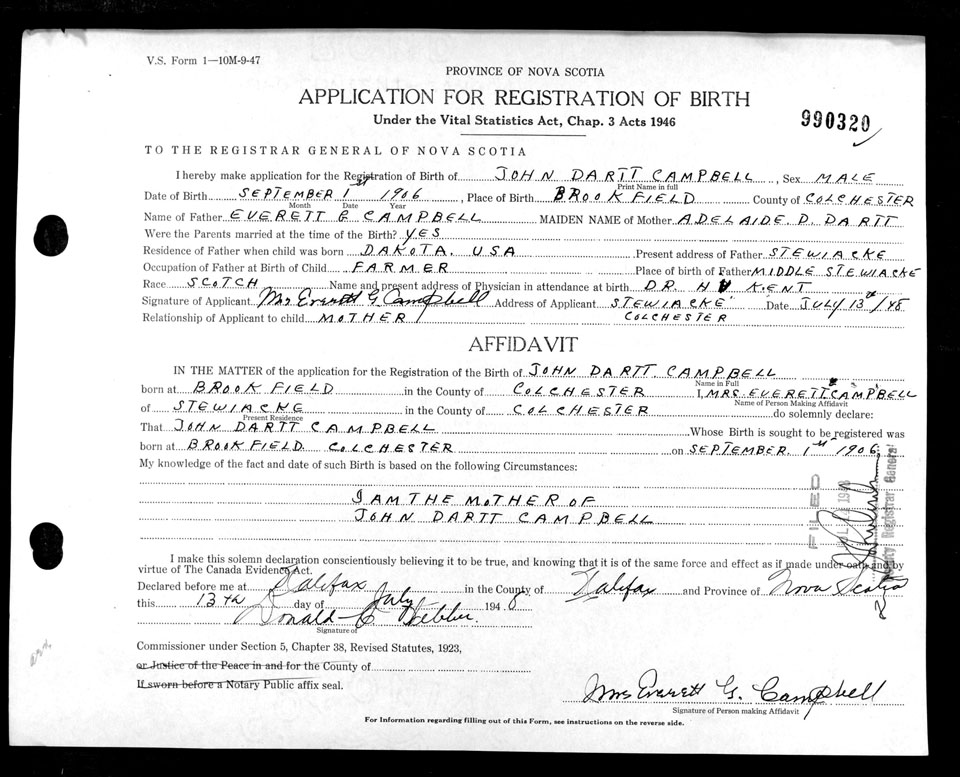 V.S. Form 1—10M-9-47
PROVINCE OF NOVA SCOTIA
APPLICATION FOR REGISTRATION OF BIRTH
Under the Vital Statistics Act, Chap. 3 Acts 1946
990320
TO THE REGISTRAR GENERAL OF NOVA SCOTIA
I hereby make application for the Registration of Birth of JOHN DARTT CAMPBELL, Sex MALE
Print Name in full
Date of Birth SEPTEMBER 1st 1906, Place of Birth BROOKFIELD County of COLCHESTER
Month Date Year
Name of Father EVERETT G CAMPBELL MAIDEN NAME of Mother ADELAIDE D. DARTT
Were the Parents married at the time of the Birth? YES
Residence of Father when child was born DAKOTA. USA Present address of Father STEWIACKE
Occupation of Father at Birth of Child FARMER Place of birth of Father MIDDLE STEWIACKE
Race SCOTCH Name and present address of Physician in attendance at birth DR. H KENT
Signature of Applicant Mrs Everett G. Campbell Address of Applicant STEWIACKE Date JULY 13th/48
Relationship of Applicant to child MOTHER COLCHESTER
AFFIDAVIT
IN THE MATTER of the application for the Registration of the Birth of JOHN DARTT CAMPBELL
Name in Full
born at BROOKFIELD in the County of COLCHESTER I, MRS EVERETT CAMPBELL
Name of Person Making Affidavit
of STEWIACKE in the County of COLCHESTER do solemnly declare:
Present Residence
That JOHN DARTT CAMPBELL Whose Birth is sought to be registered was
born at BROOKFIELD COLCHESTER on SEPTEMBER 1st 1906
My knowledge of the fact and date of such Birth is based on the following Circumstances:
I AM THE MOTHER OF
JOHN DARTT CAMPBELL
FILED
Deputy Registrar General
I make this solemn declaration conscientiously believing it to be true, and knowing that it is of the same force and effect as if made under oath and by
virtue of The Canada Evidence Act.
Declared before me at Halifax in the County of Halifax and Province of Nova Scotia
this 13th day of July 1948
Donald C Webber.
Signature of
Commissioner under Section 5, Chapter 38, Revised Statutes, 1923,
or Justice of the Peace in and for the County of
If sworn before a Notary Public affix seal.
Mrs Everett G. Campbell
Signature of Person making Affidavit
For Information regarding filling out of this Form, see instructions on the reverse side.